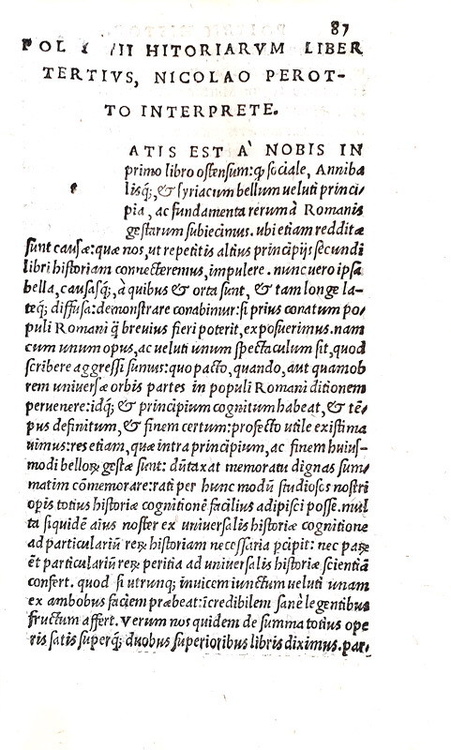 87
POL Y II HITORIARVM LIBER
TERTIVS, NICOLAO PEROT-
TO INTERPRETE.
ATIS EST A' NOBIS IN
primo libro ostensum: ꝙ sociale, Anniba
lisq;, & syriacum bellum ueluti princi-
pia, ac fundamenta rerum à Romanis
gestarum subiecimus. ubi etiam redditæ
sunt causæ: quæ nos, ut repetitis altius principijs secundi
libri historiam connecteremus, impulere. nunc uero ipsa
bella, causasq;, à quibus & orta sunt, & tam longe la-
teq; diffusa: demonstrare conabimur: si prius conatum po-
puli Romani q̃ breuius fieri poterit, exposuerimus. nam
cum unum opus, ac ueluti unum spectaculum sit, quod
scribere aggressi sumus: quo pacto, quando, aut quamob
rem uniuersæ orbis partes in populi Romani ditionem
peruenere: idq; & principium cognitum habeat, & tẽ-
pus definitum, & finem certum: profecto utile existima
uimus: res etiam, quæ intra principium, ac finem huius-
modi belloꝝ gestæ sunt: dũtaxat memoratu dignas sum-
matim cõmemorare: rati per hunc modũ studiosos nostri
opis totius historiæ cognitionẽ facilius adipisci posse. mul
ta siquidẽ aíus noster ex uniuersalis historiæ cognitione
ad particulariũ reꝝ historiam necessaria pcipit: nec paꝝ
ẽt particulariũ reꝝ peritia ad uniuersalis historiæ scientiã
confert. quod si utrunq; inuicem iunctum ueluti unam
ex ambobus faciem præbeat: ĩcredibilem sanè legentibus
fructum affert. Verum nos quidem de summa totius ope
ris satis superq; duobus superioribus libris diximus. par-